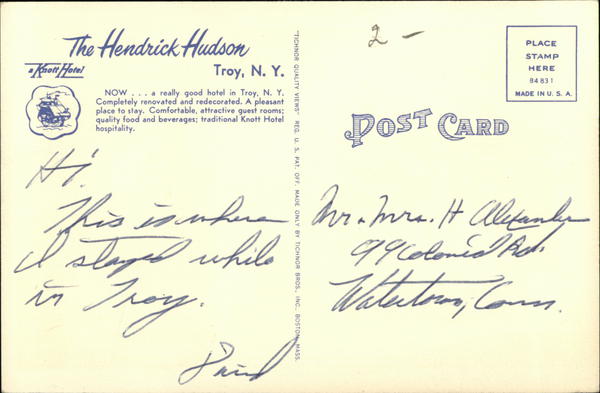 The Hendrick Hudson
a Knott Hotel
Troy, N. Y.
NOW . . . a really good hotel in Troy, N. Y.
Completely renovated and redecorated. A pleasant
place to stay. Comfortable, attractive guest rooms;
quality food and beverages; traditional Knott Hotel
hospitality.
Hi.
This is where
I stayed while
in Troy.
"TICHNOR QUALITY VIEWS" REG. U. S. PAT. OFF. MADE ONLY BY TICHNOR BROS., INC., BOSTON, MASS.
2 -
PLACE
STAMP
HERE
84831
MADE IN U. S. A.
POST CARD
Mr. & Mrs. H Alexander
99 Colonial Rd.
Watertown, Conn.